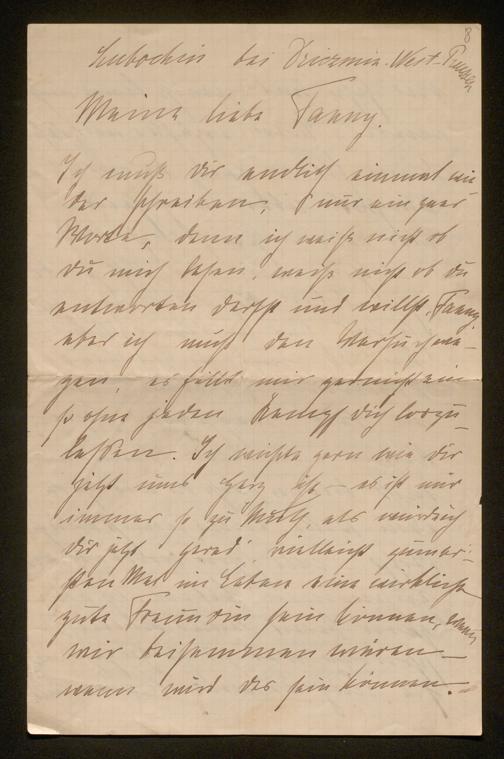 8
Lubochin bei Driczmin. West-Preußen
Meine liebe Fanny.
Ich muß dir endlich einmal wie-
der schreiben, nur ein paar
Worte, denn ich weiß nicht ob
du mich lesen, weiß nicht ob du
antworten darfst und willst, Fanny
aber ich muß den Versuch wa-
gen, es fällt mir garnicht ein
so ohne jeden Kampf dich loszu-
lassen. Ich wüßte gern wie dir
jetzt ums Herz ist – es ist mir
immer so zu Muth, als würd ich
dir jetzt grad vielleicht zum er-
sten Mal im Leben eine wirklich
gute Freundin sein können, wenn
wir beisammen wären –
wann wird das sein können. –